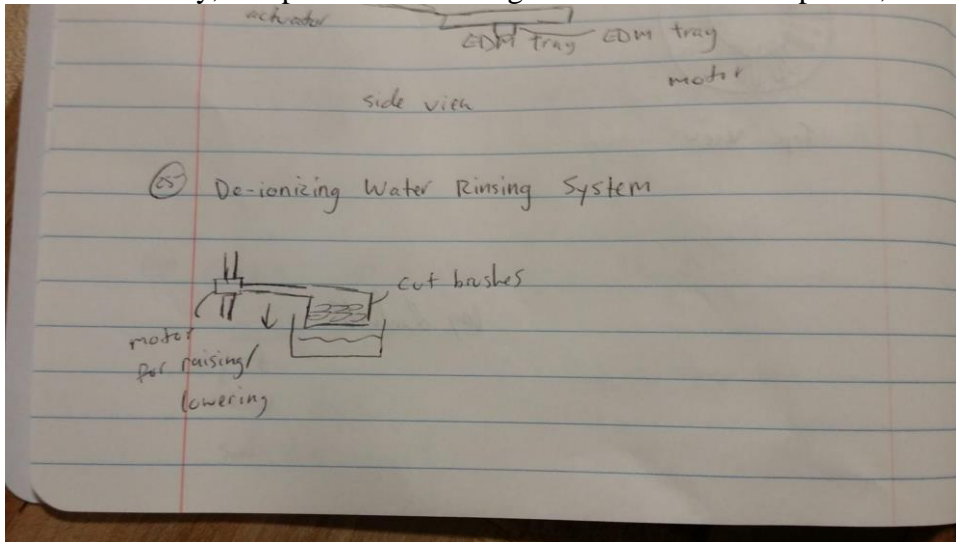 actuator
EDM tray EDM tray
motor
side view
25 De-ionizing Water Rinsing System
cut brushes
motor
for raising/
lowering